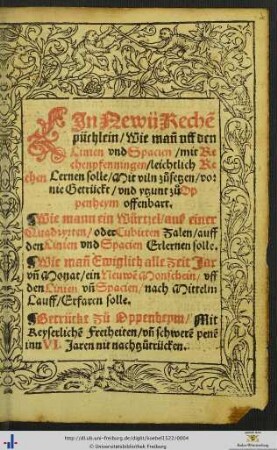 EIn Newü Rechẽ
püchlein / Wie mañ uff den
Linien vnd Spacien / mit Re
chenpfenningen / leichtlich Re
chen Lernen solle / Mit viln zůsetzen / vor
nie Getrückt / vnd yetzunt zů Op
penheym offenbart.
Wie mann ein Würtzel / aus einer
Quadzyten / oder Cubicten Zalen / auff
den Linien vnd Spacien Erlernen solle.
Wie mañ Ewiglich alle zeit Jar
vñ Monat / ein Neuwẽ Monschein / vff
den Linien vñ Spacien / nach Mittelm
Lauff / Erfaren solle.
Getrückt zů Oppenheym / Mit
Keyserlichẽ Freiheiten / vñ schwerẽ penẽ
inn VI. Jaren nit nachgůtrücken.
http://dl.ub.uni-freiburg.de/diglit/koebel1522/0004
© Universitätsbibliothek Freiburg